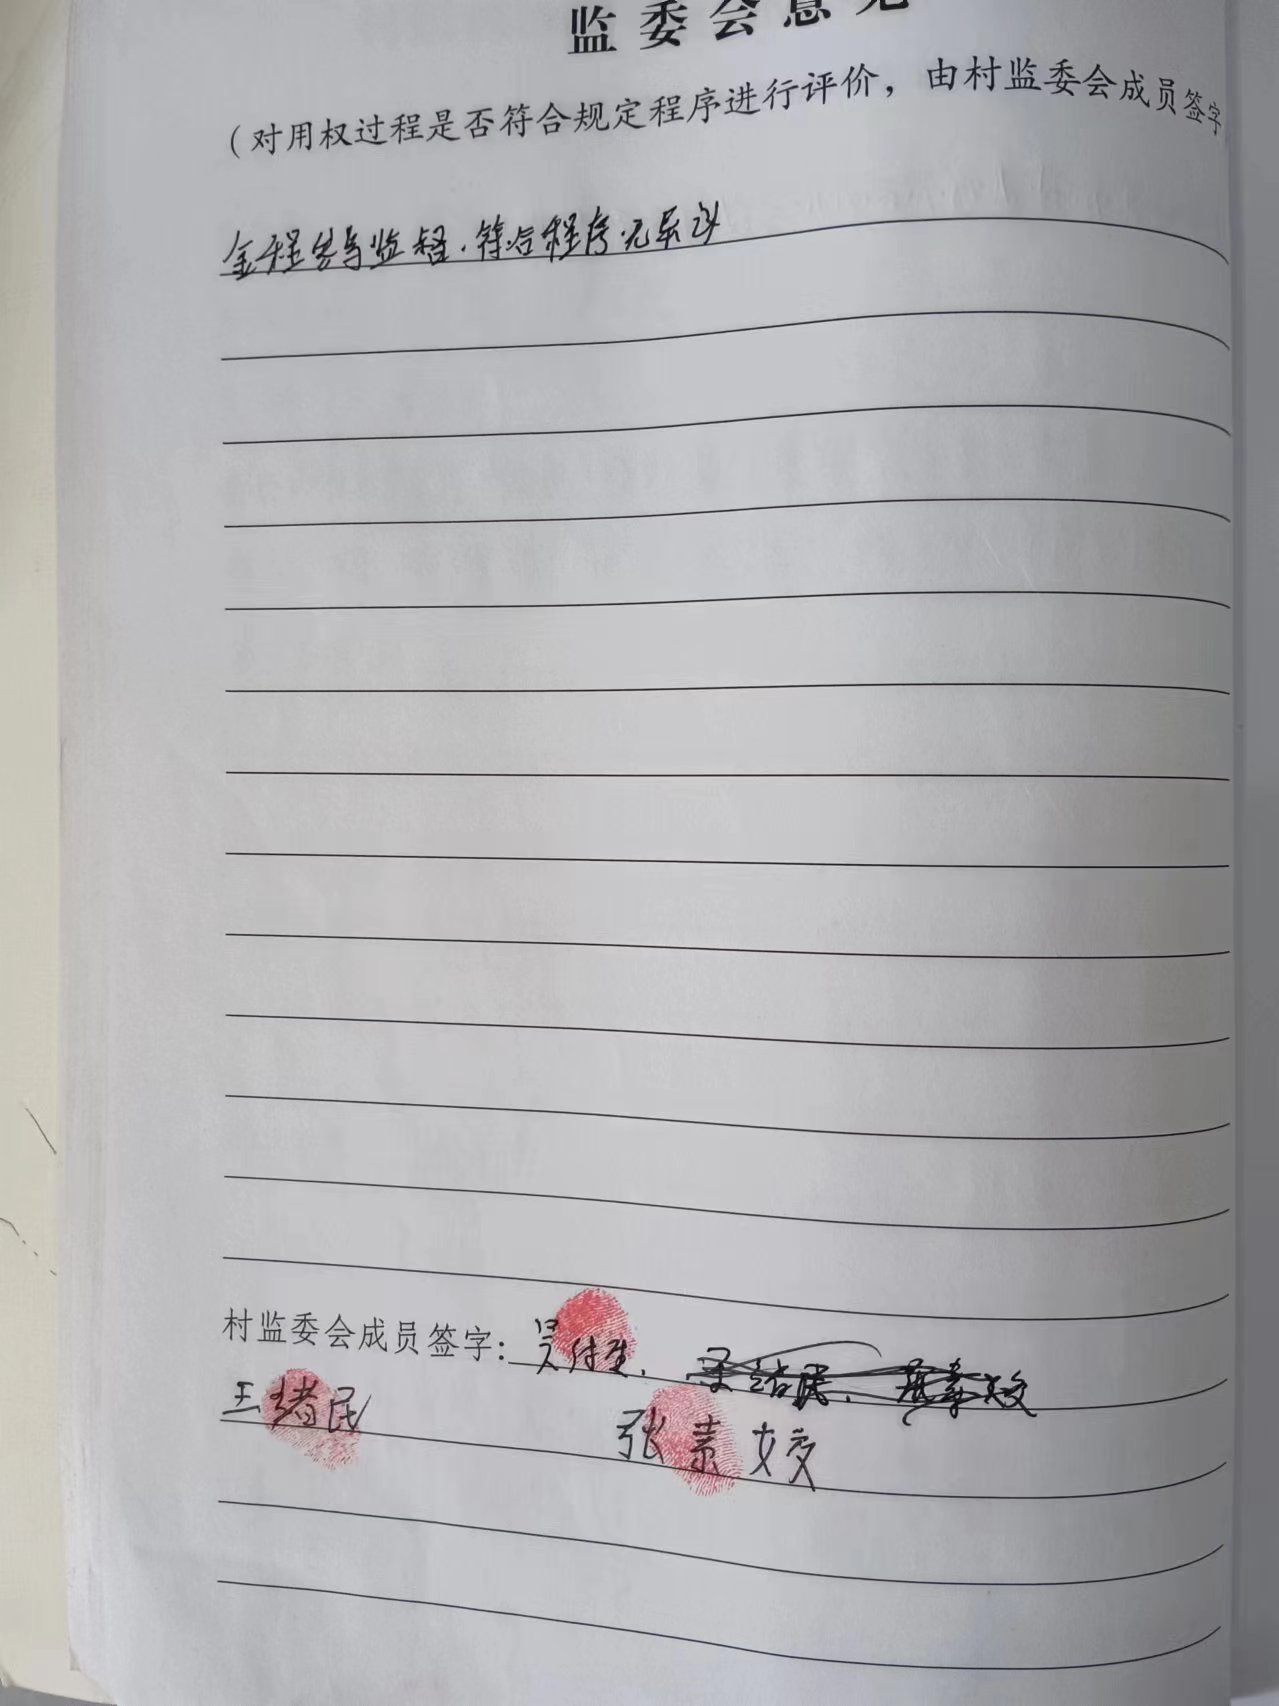 监委会意见
（对用权过程是否符合规定程序进行评价，由村监委会成员签字
全程参与监督.符合程序.无异议
村监委会成员签字：吴付生.
王绪民 张素姣